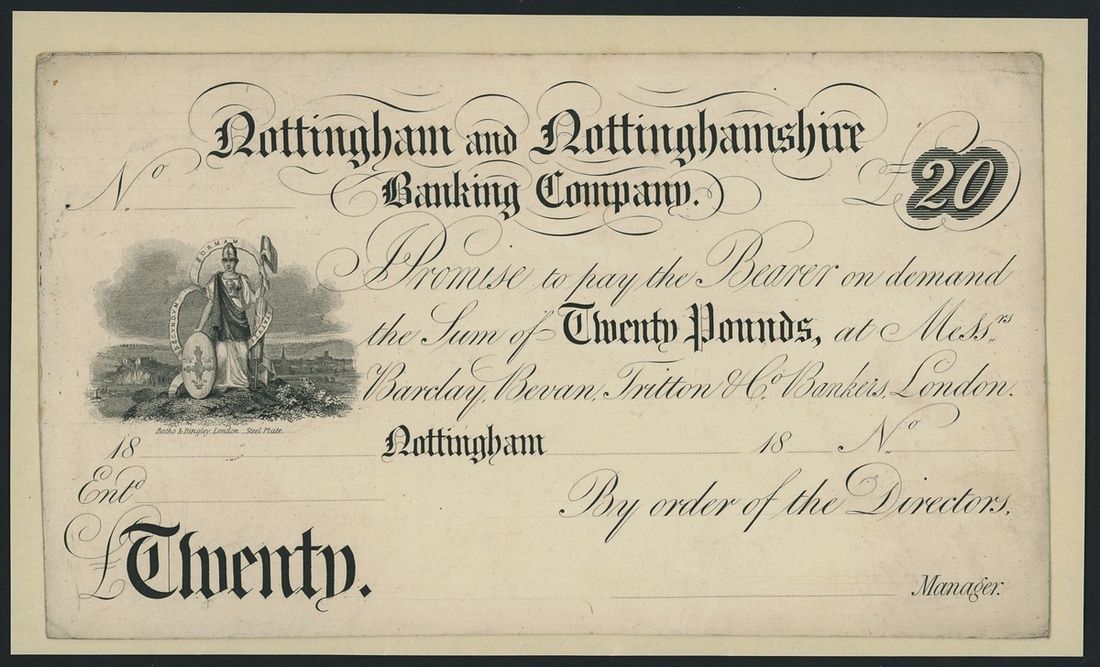 Nottingham and Nottinghamshire
Banking Company.
No
£20
I Promise to pay the Bearer on demand
the Sum of Twenty Pounds, at Messrs
Barclay, Bevan, Tritton & Co. Bankers, London.
FORMAM
SECUNDUM
Batho & Bingley, London. Steel Plate.
18 Nottingham 18 No
Entd
By order of the Directors,
£Twenty.
Manager.